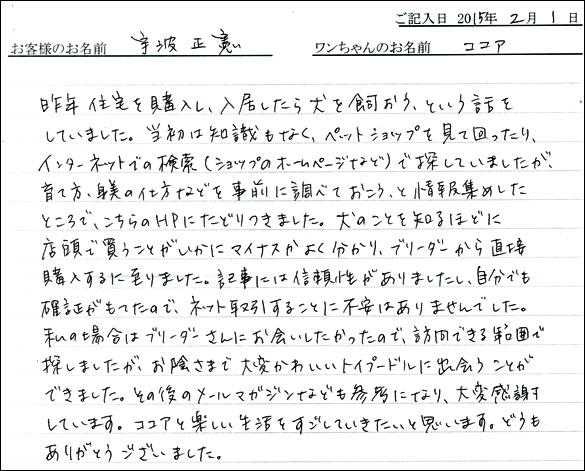 ご記入日 2015年 2月 1日
お客様のお名前 宇波 正寛 ワンちゃんのお名前 ココア
昨年 住宅を購入し、入居したら犬を飼おう、という話を
していました。当初は知識もなく、ペットショップを見て回ったり、
インターネットでの検索(ショップのホームページなど)で探していましたが、
育て方、躾の仕方などを事前に調べておこう、と情報集めした
ところで、こちらのHPにたどりつきました。犬のことを知るほどに
店頭で買うことがいかにマイナスかよく分かり、ブリーダーから直接
購入するに至りました。記事には信頼性がありましたし、自分でも
確証がもてたので、ネット取引することに不安はありませんでした。
私の場合はブリーダーさんにお会いしたかったので、訪問できる範囲で
探しましたが、お陰さまで大変かわいいトイプードルに出会うことが
できました。その後のメールマガジンなども参考になり、大変感謝
しています。ココアと楽しい生活をすごしていきたいと思います。どうも
ありがとうございました。